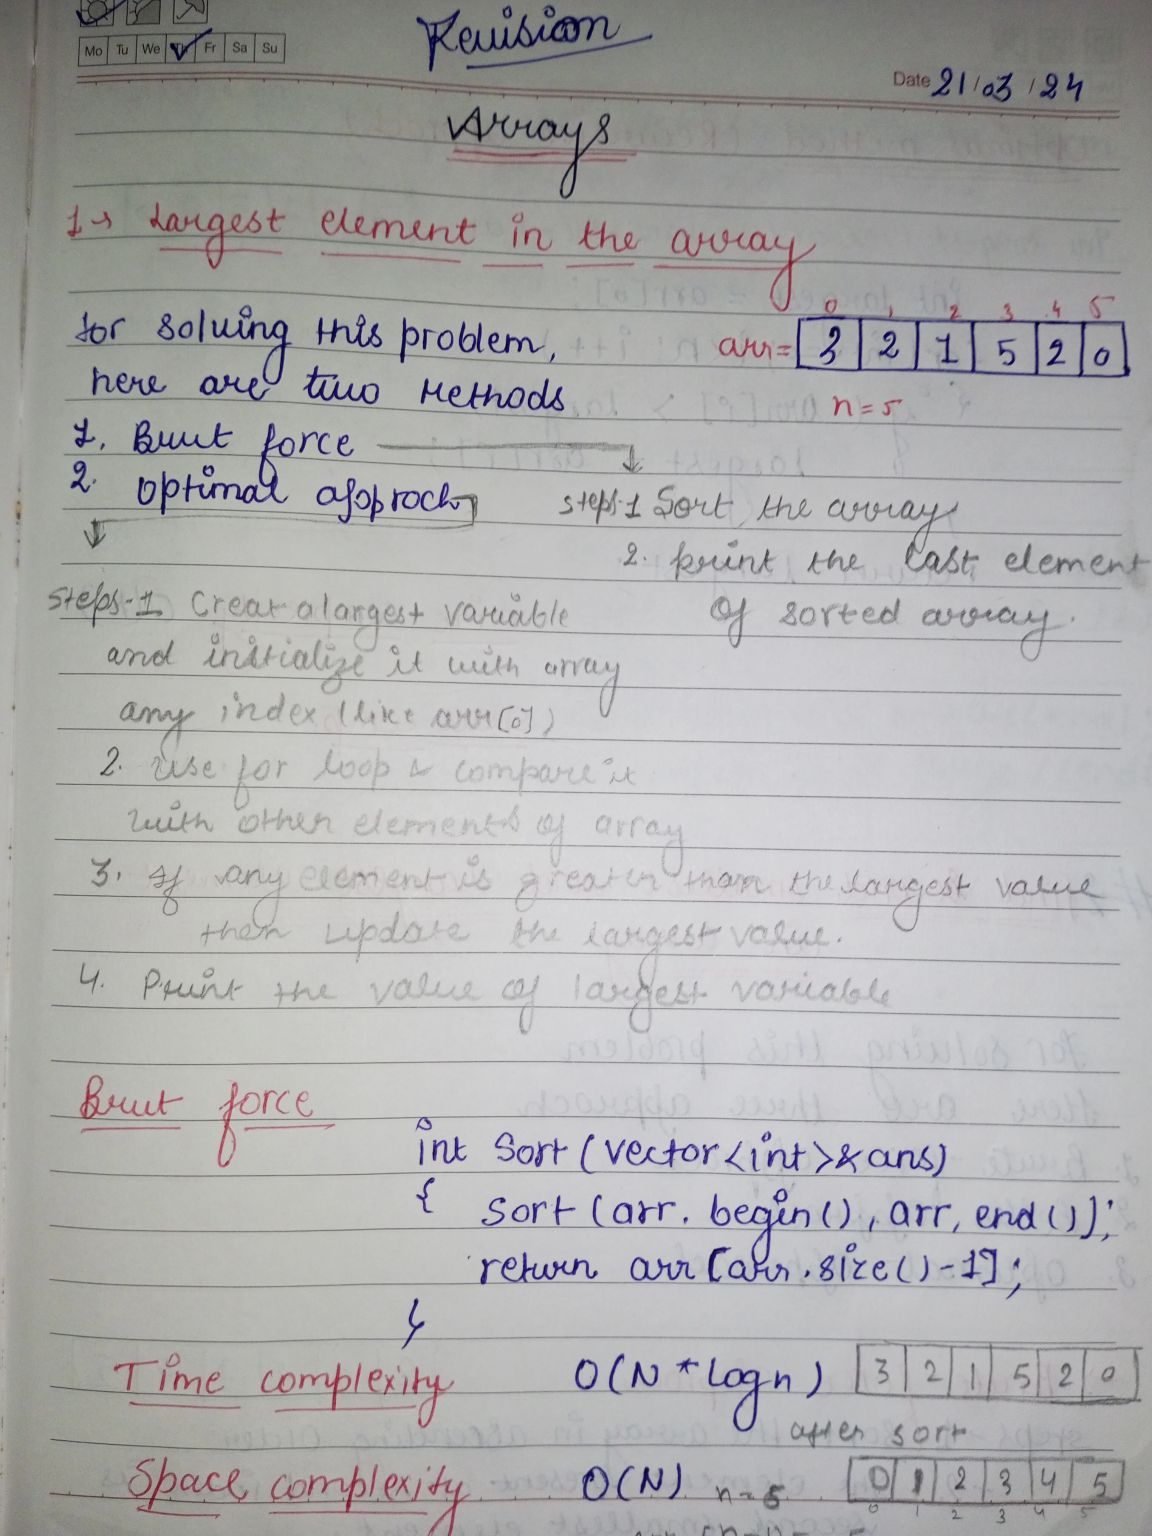 Mo Tu We Fr Sa Su
Revision
Date 21/03/24
Arrays
1→ Largest element in the array
for solving this problem,
here are two Methods
0 1 2 3 4 5
arr= 3 2 1 5 2 0
n=5
1. Brut force
2. optimal approch
steps-1 Sort the array
2. print the last element
of sorted array.
steps-1 Creat a largest variable
and initialize it with array
any index (like arr[0])
2. Use for loop & compare it
with other elements of array
3. If any element is greater than the largest value
then update the largest value.
4. Print the value of largest variable
Brut force
int Sort (vector<int>& ans)
{ sort (arr. begin(), arr, end());
return arr [arr.size()-1];
}
Time complexity O(N * logn) 3 2 1 5 2 0
after sort
Space complexity O(N) n=5 0 1 2 3 4 5
0 1 2 3 4 5